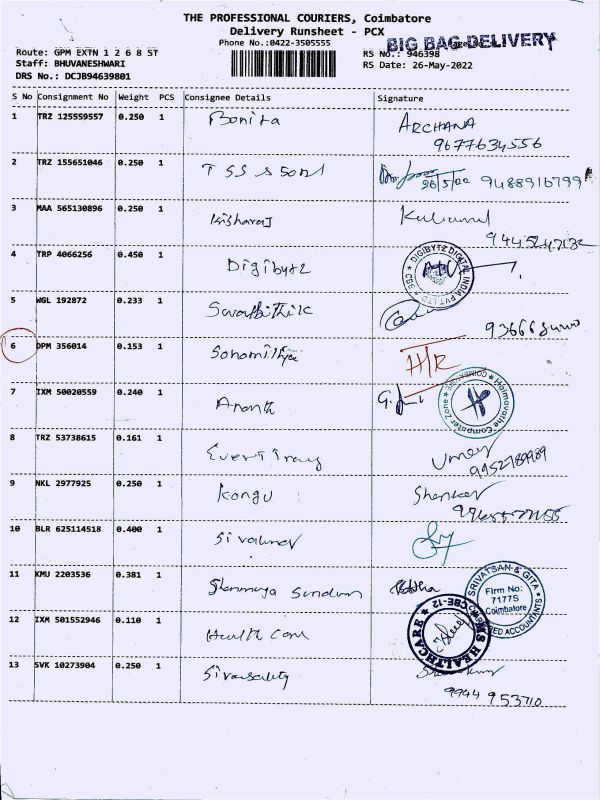 THE PROFESSIONAL COURIERS, Coimbatore
Delivery Runsheet - PCX
Phone No.:0422-3505555
BIG BAG DELIVERY
Route: GPM EXTN 1 2 6 8 ST
RS No.: 946398
Staff: BHUVANESHWARI
RS Date: 26-May-2022
DRS No.: DCJB94639801
S No Consignment No Weight PCS Consignee Details Signature
1 TRZ 125559557 0.250 1 Bonita ARCHANA
9677634556
2 TRZ 155651046 0.250 1 TSS
9488916799
3 MAA 565130896 0.250 1
4 TRP 4066256 0.450 1 Digibytz
DIGIBYTZ DIGITAL INDIA PVT LTD
5 WGL 192872 0.233 1
6 DPM 356014 0.153 1 H/R
7 IXM 50020559 0.240 1 Ananth
Haimavathe Computer Zone
8 TRZ 53738615 0.161 1
9 NKL 2977925 0.250 1 Kongu Shanker
10 BLR 625114518 0.400 1
11 KMU 2203536 0.381 1 Shanmuga Sundaram
SRIVATSAN & GITA
Firm No:
7177S
Coimbatore
12 IXM 501552946 0.110 1 Health Care
MS HEALTHCARE CBE-12
13 SVK 10273904 0.250 1
9944 953710